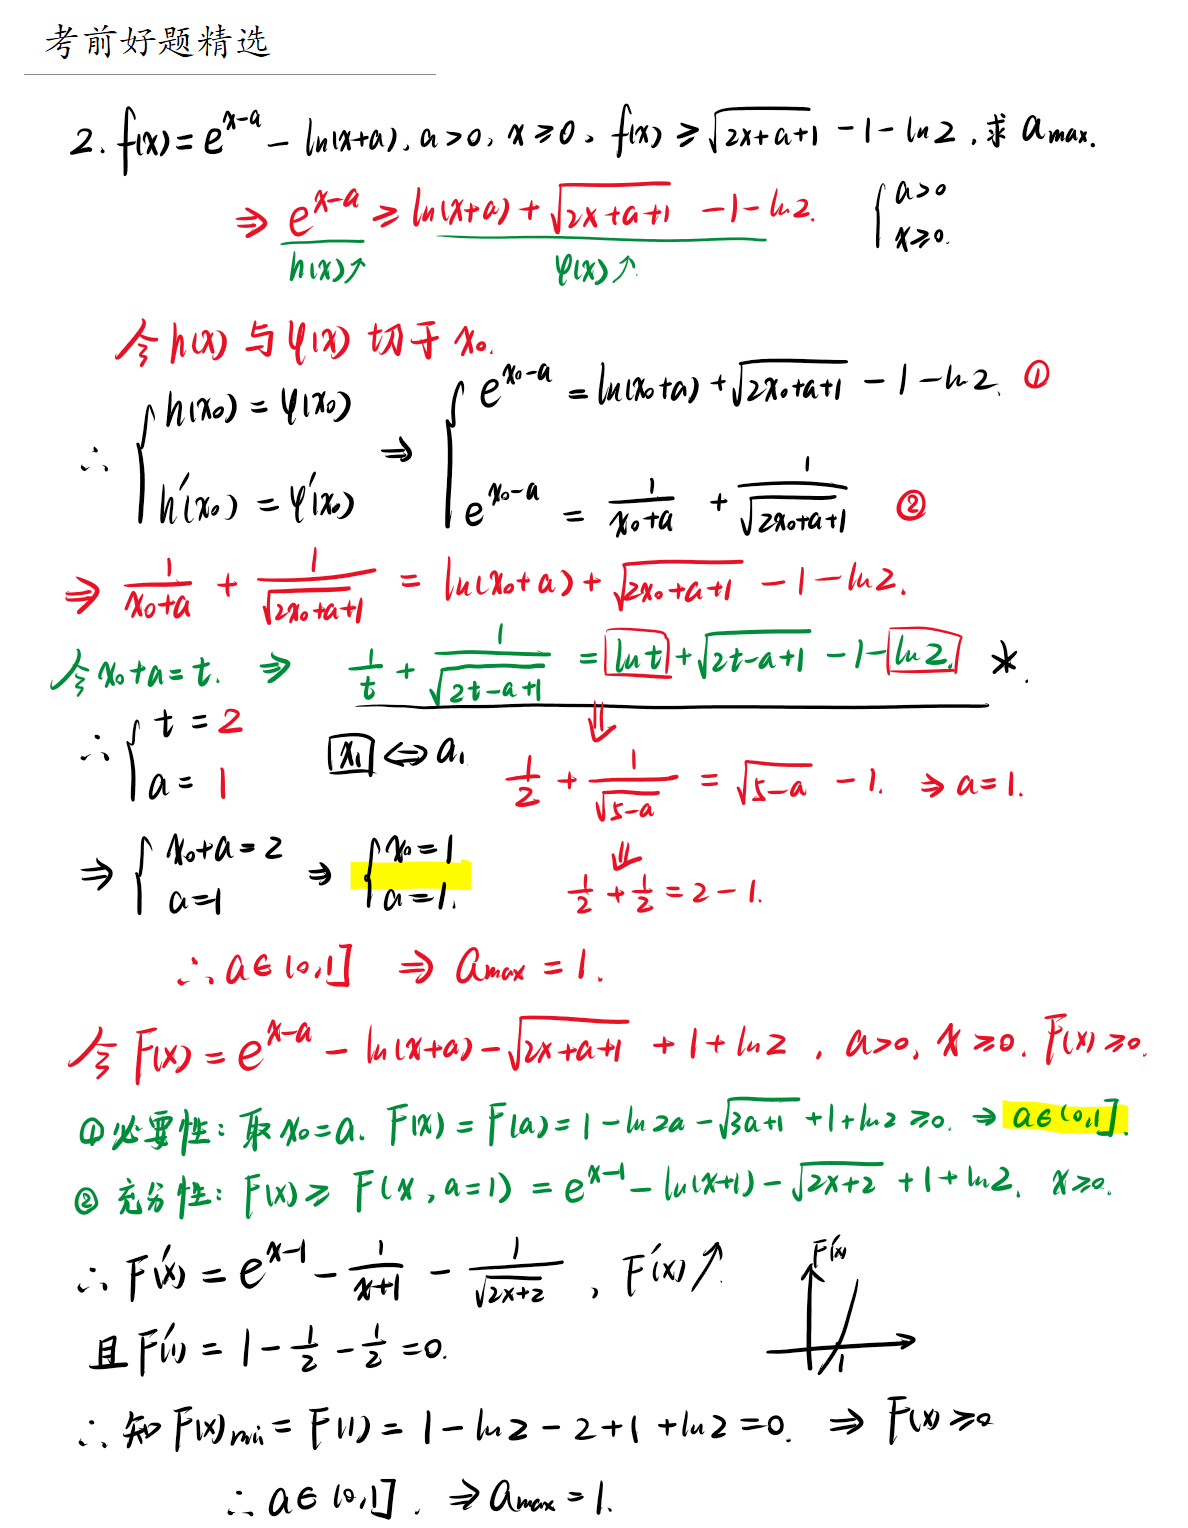 考前好题精选
2. f(x) = e^{x-a} - ln(x+a), a>0, x≥0, f(x) ≥ √(2x+a+1) - 1 - ln2, 求 a_max.
⇒ e^{x-a} ≥ ln(x+a) + √(2x+a+1) - 1 - ln2. { a>0 x≥0.
h(x)↗ φ(x)↗
令 h(x) 与 φ(x) 切于 x₀.
∴ { h(x₀) = φ(x₀) ⇒ { e^{x₀-a} = ln(x₀+a) + √(2x₀+a+1) - 1 - ln2. ①
h'(x₀) = φ'(x₀) e^{x₀-a} = 1/(x₀+a) + 1/√(2x₀+a+1) ②
⇒ 1/(x₀+a) + 1/√(2x₀+a+1) = ln(x₀+a) + √(2x₀+a+1) - 1 - ln2.
令 x₀+a=t. ⇒ 1/t + 1/√(2t-a+1) = ln t + √(2t-a+1) - 1 - ln2. *.
∴ { t = 2 a = 1 x₁ ⇔ a₁ ⇓
1/2 + 1/√(5-a) = √(5-a) - 1. ⇒ a=1.
⇒ { x₀+a=2 a=1 ⇒ { x₀=1 a=1. ⇓
1/2 + 1/2 = 2-1.
∴ a∈(0,1] ⇒ a_max = 1.
令 F(x) = e^{x-a} - ln(x+a) - √(2x+a+1) + 1 + ln2, a>0, x≥0. F(x)≥0.
①必要性: 取 x₀=a. F(x) = F(a) = 1 - ln2a - √(3a+1) + 1 + ln2 ≥0. ⇒ a∈(0,1].
② 充分性: F(x) ≥ F(x, a=1) = e^{x-1} - ln(x+1) - √(2x+2) + 1 + ln2. x≥0.
∴ F'(x) = e^{x-1} - 1/(x+1) - 1/√(2x+2), F'(x)↗. F'(x)
且 F'(1) = 1 - 1/2 - 1/2 = 0. 1
∴ 知 F(x)min = F(1) = 1 - ln2 - 2 + 1 + ln2 = 0. ⇒ F(x) ≥0
∴ a∈(0,1]. ⇒ a_max = 1.